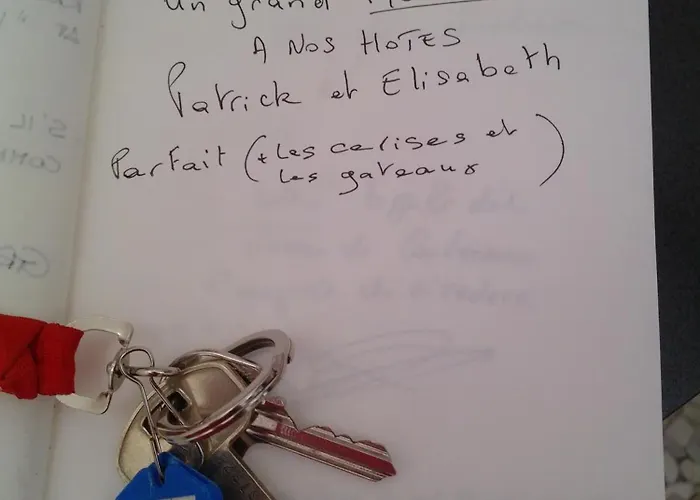 un grand
A NOS HOTES
Patrick et Elisabeth
Parfait (+ les cerises et
les gateaux)